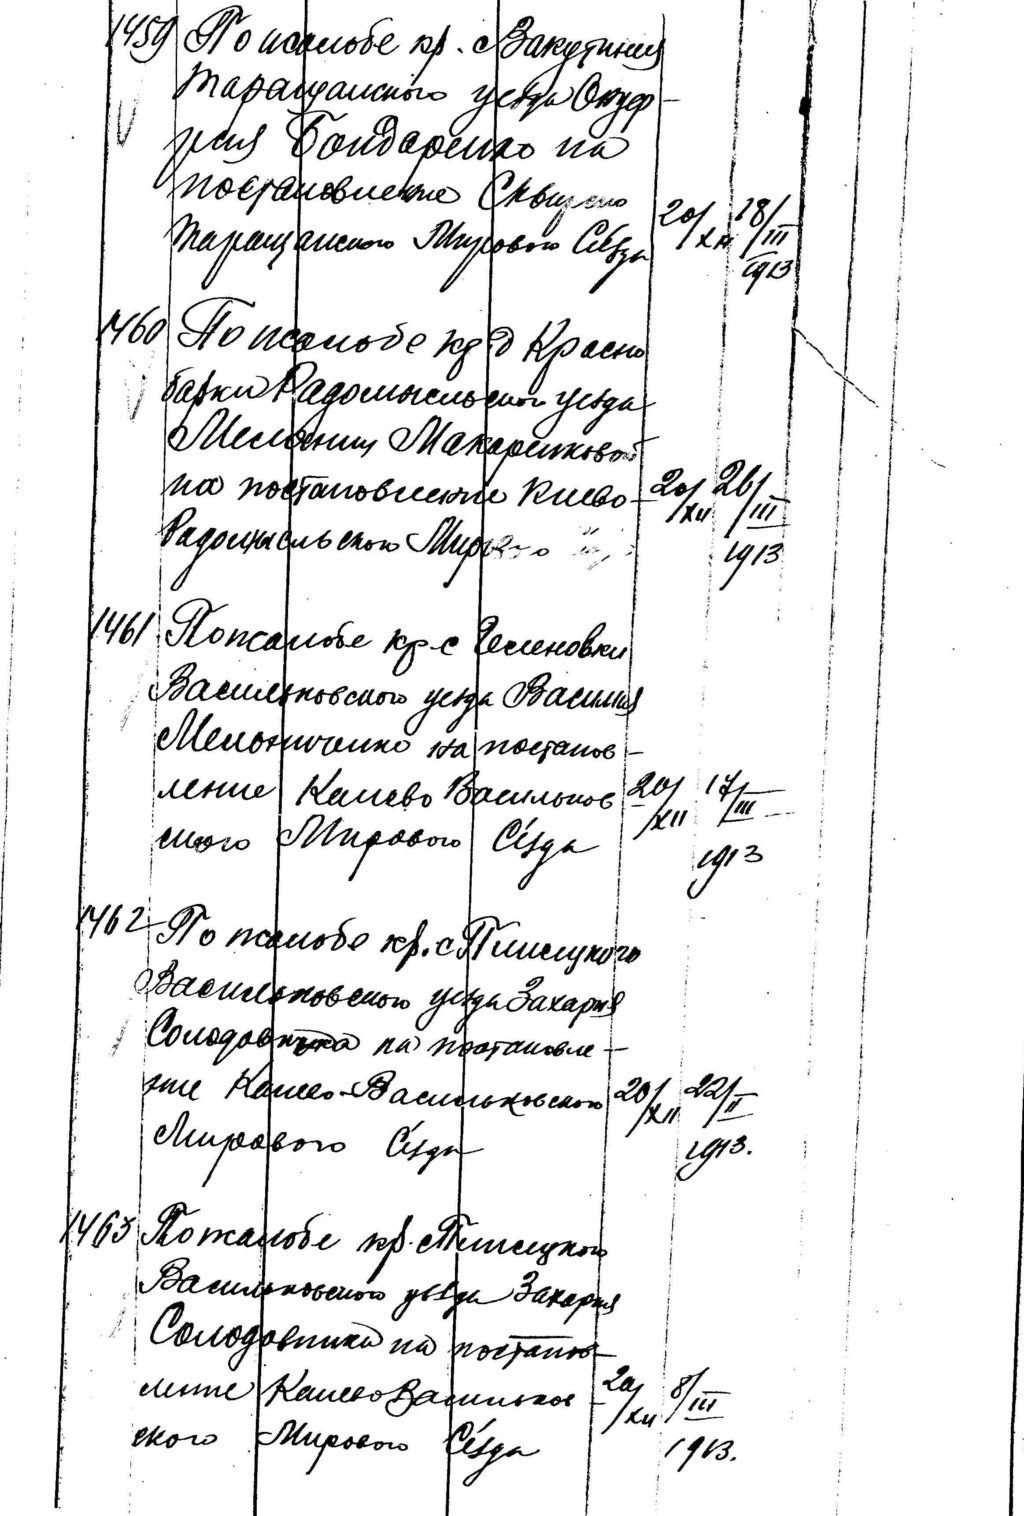 1459 По жалобе кр. с Закутинец
Таращанского уезда Онуф-
рия Бондаренко на
постановление Сквирско
Таращанского Мирового Съезда 20/XII 18/III
1913
1460 По жалобе кр д Красно
барки Радомысльского уезда
Мелании Макаренковой
на постановление Киево- 20/XII 26/III
Радомысльского Мирового 1913
1461 По жалобе кр. с
Васильковского уезда Василия
Мельниченко на постанов-
ление Каневско Васильков 20/XII 17/III
ского Мирового Съезда 1913
1462 По жалобе кр. с Плисецкого
Васильковского уезда Захария
Солодовника на постановле-
ние Канево-Васильковского 20/XII 22/II
Мирового Съезда 1913.
1463 По жалобе кр. с Плисецкого
Васильковского уезда Захария
Солодовника на постанов-
ление Канево Васильков- 20/XII 8/III
ского Мирового Съезда 1913.